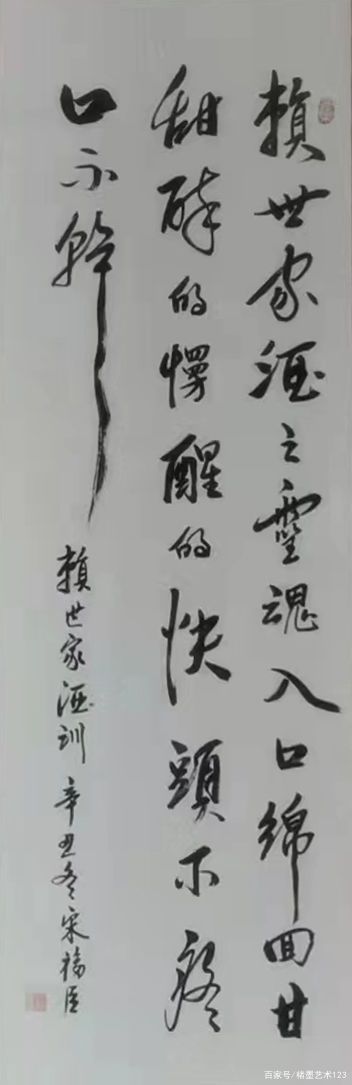 賴世家酒之靈魂入口綿回甘
甜醉的慢醒的快頭不疼
口不幹
賴世家酒訓 辛丑冬 宋福臣
百家号/楮墨艺术123